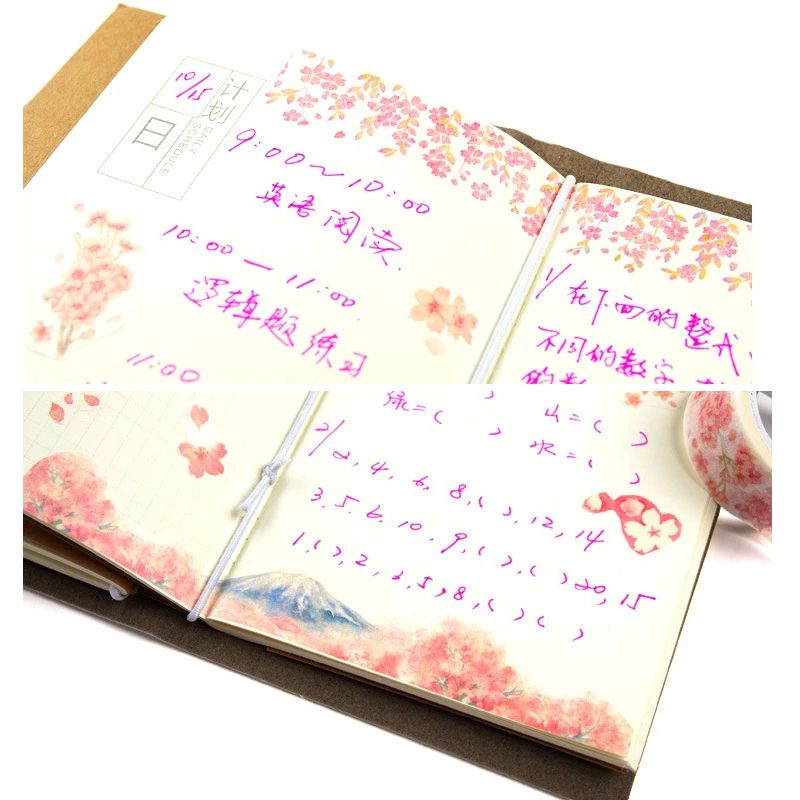 10/15
计划
日
DAILY SCHEDULE
9:00~10:00
英语阅读.
10:00—11:00.
逻辑题练习
11:00
1/在下面的整式
不同的数字
的数
绿=( ) 山=( )
水=( )
2/2,4,6,8,( ),12,14
3,5,6,10,9,( ),( )20,15
1,( ),2,3,5,8,( )( )